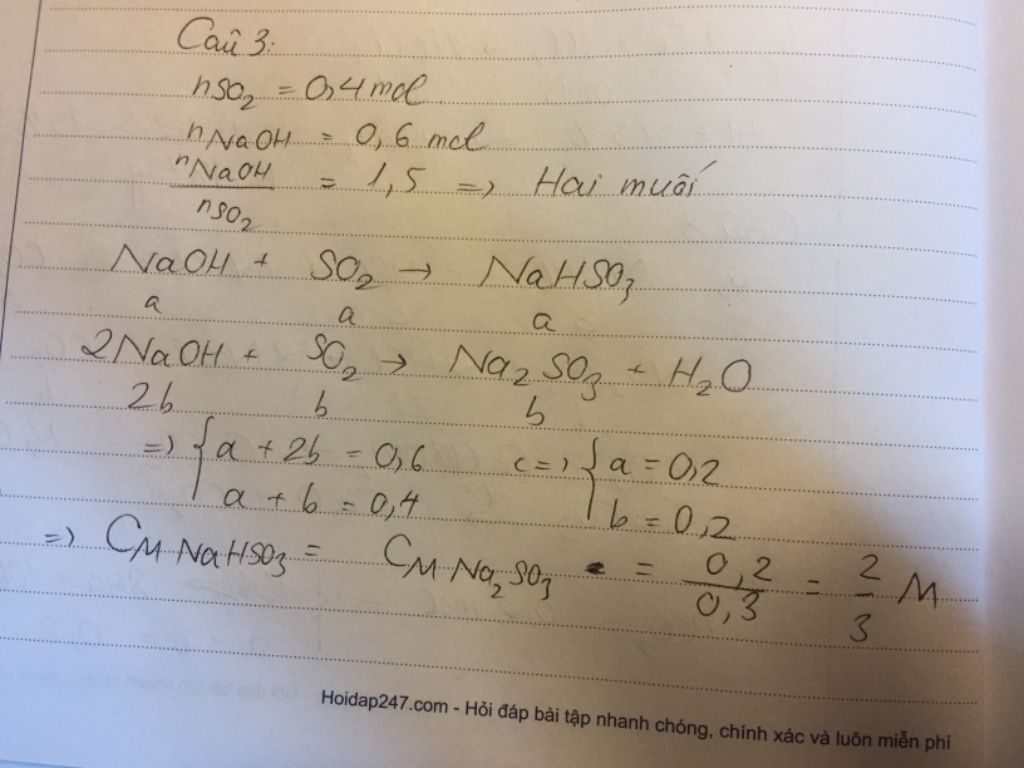 Câu 3:
nSO₂ = 0,4 mol
nNaOH = 0,6 mol
nNaOH / nSO₂ = 1,5 => Hai muối
NaOH + SO₂ → NaHSO₃
a a a
2NaOH + SO₂ → Na₂SO₃ + H₂O
2b b b
=> { a + 2b = 0,6 <=> { a = 0,2
a + b = 0,4 b = 0,2
=> CM NaHSO₃ = CM Na₂SO₃ = 0,2 / 0,3 = 2/3 M
Hoidap247.com - Hỏi đáp bài tập nhanh chóng, chính xác và luôn miễn phí